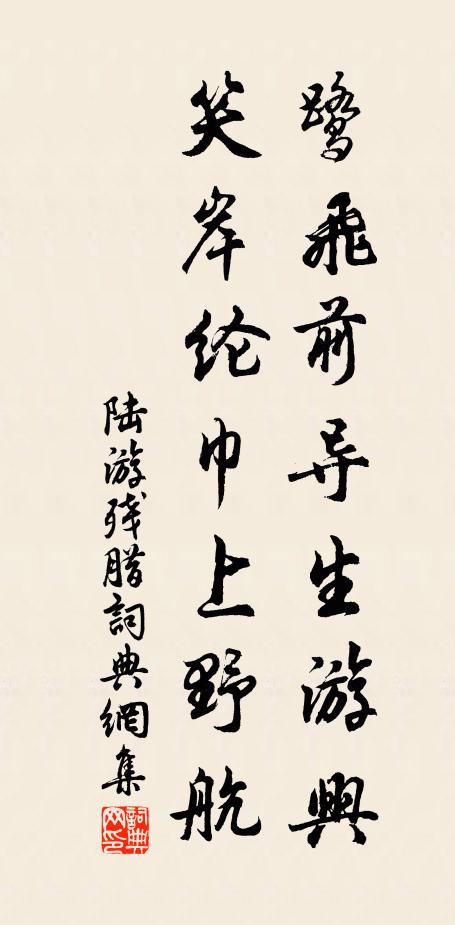 鷺飛前导生游興
笑岸纶巾上野航
陆游残腊詞典網集
詞典网印